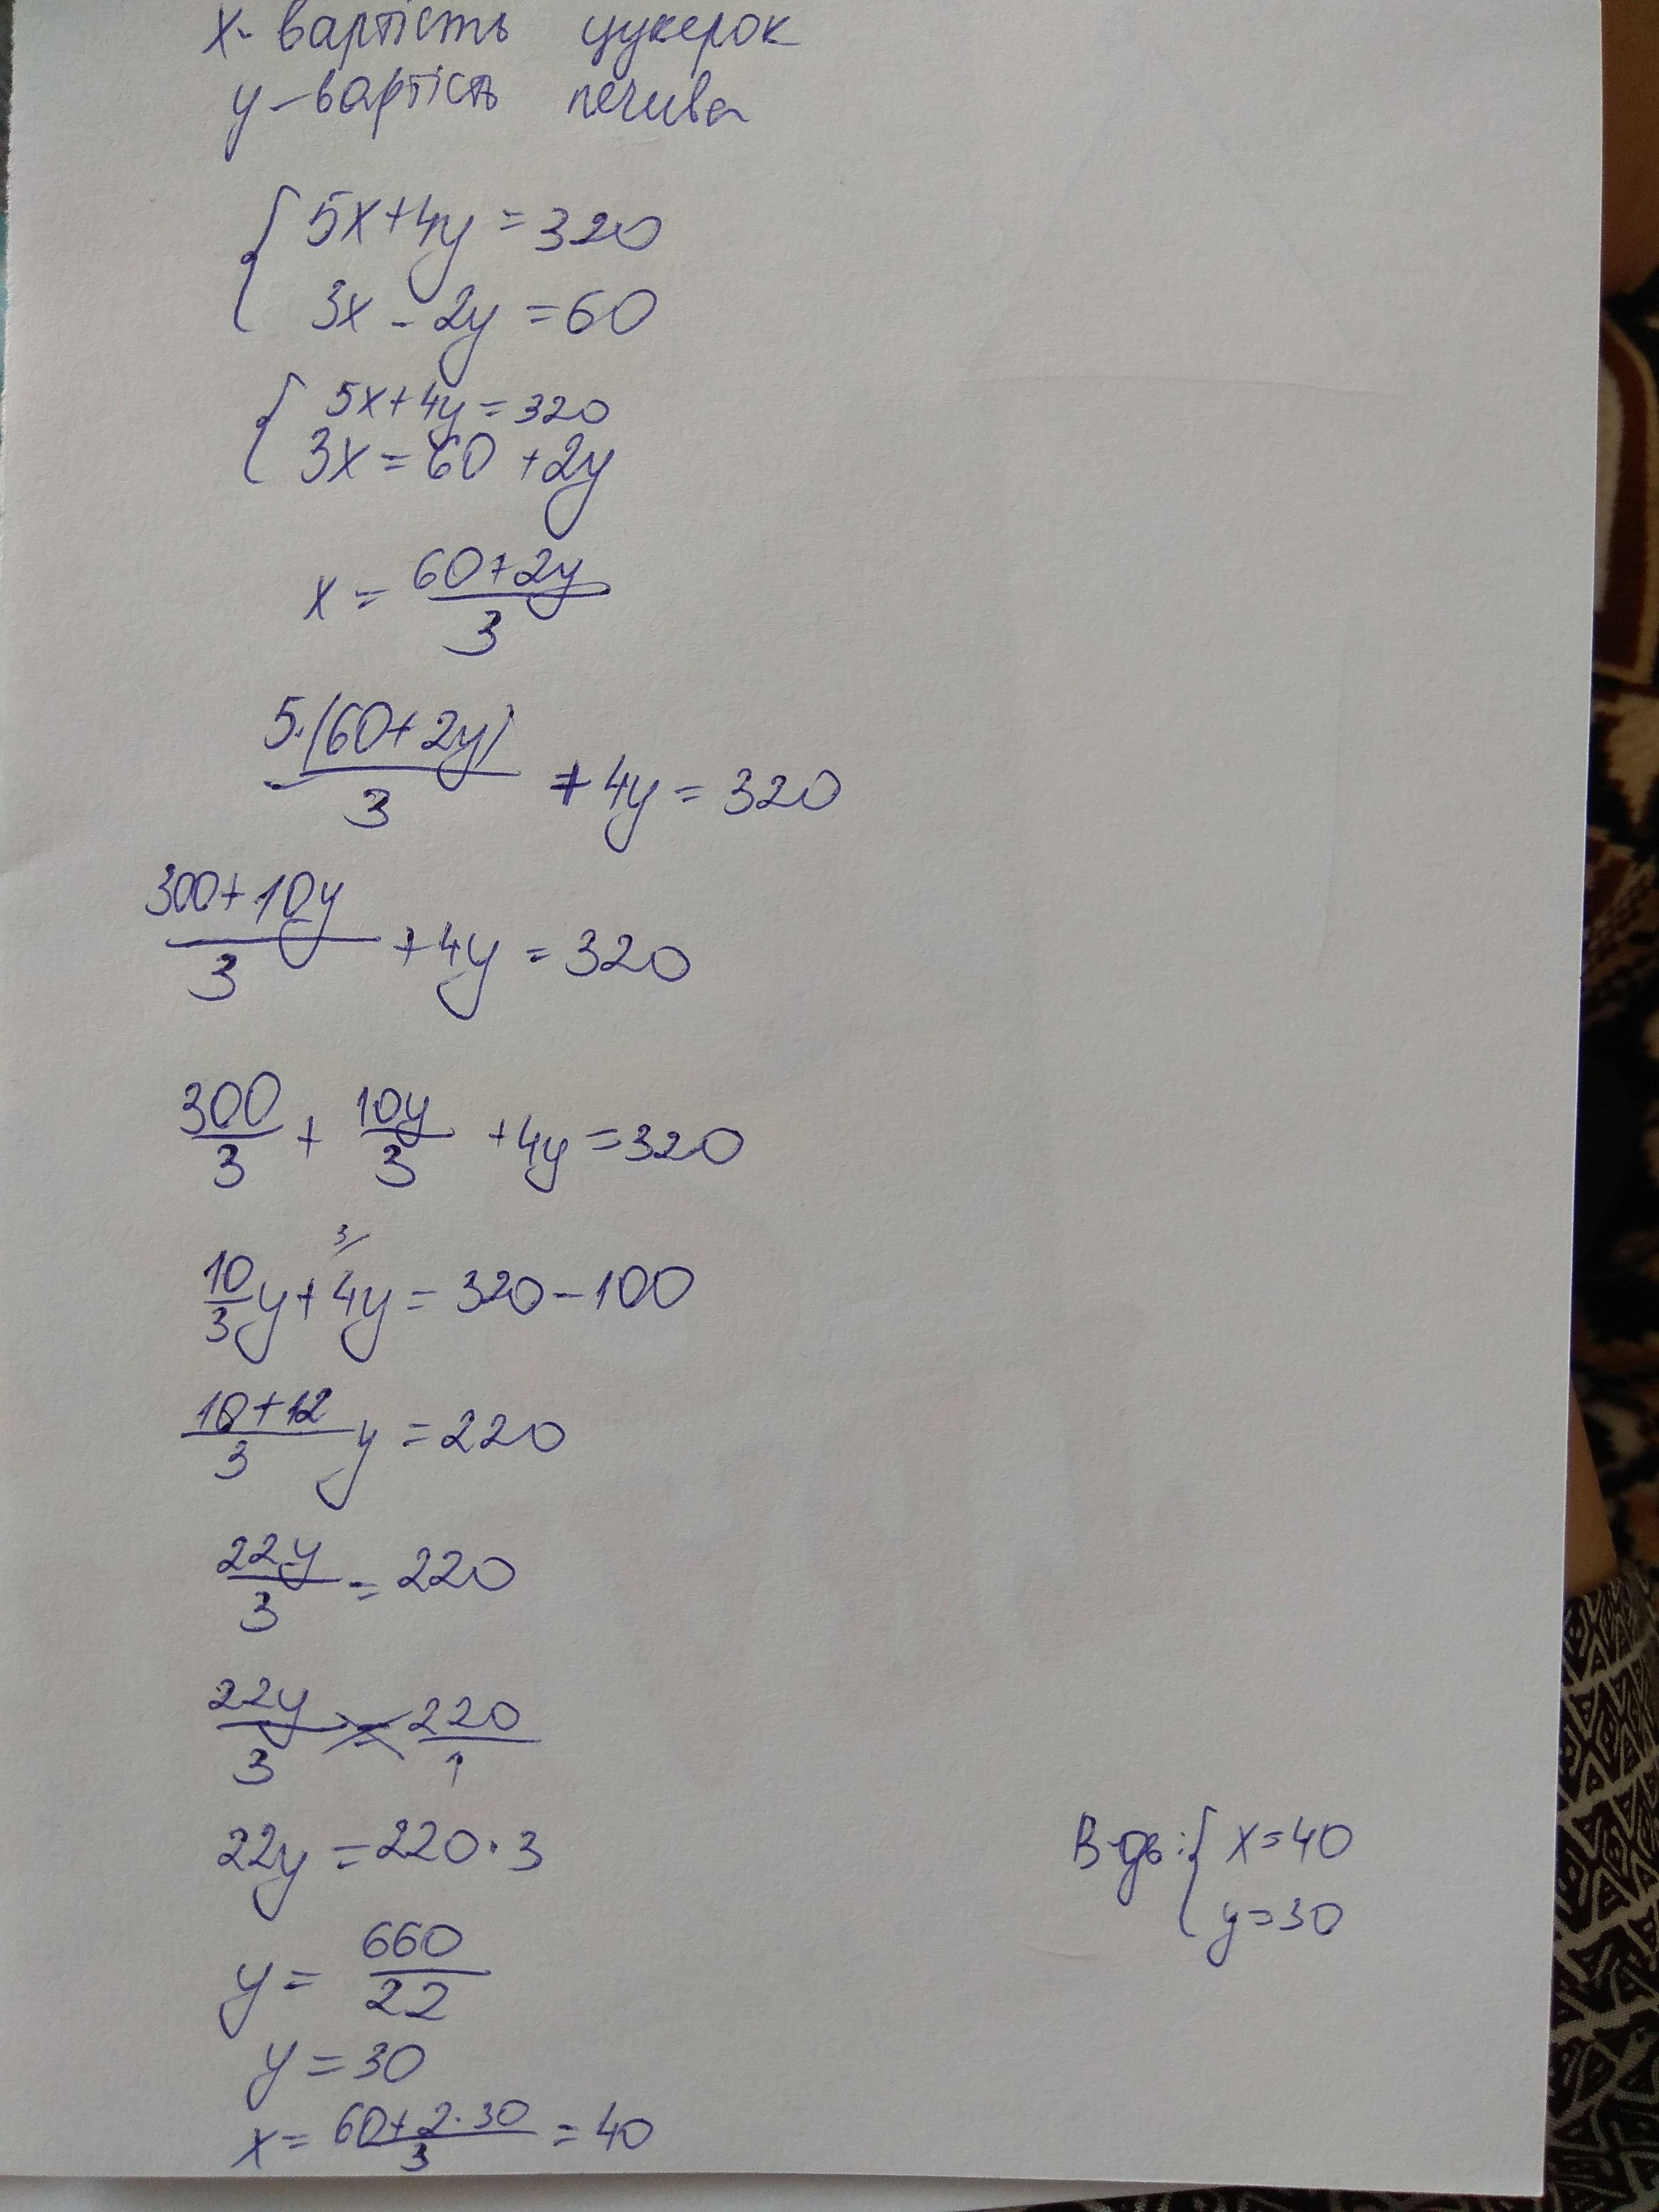 x - вартість цукерок
y - вартість печива
5x+4y=320
3x-2y=60
5x+4y=320
3x=60+2y
x=60+2y
3
5·(60+2y)
3
+4y=320
300+10y
3
+4y=320
300/3 + 10y/3 +4y=320
3/
10/3 y+4y=320-100
10+12
3
y=220
22y/3 = 220
22y/3 = 220/1
22y=220·3
y=660/22
y=30
x=60+2·30
3
=40
В-дь: x=40
y=30